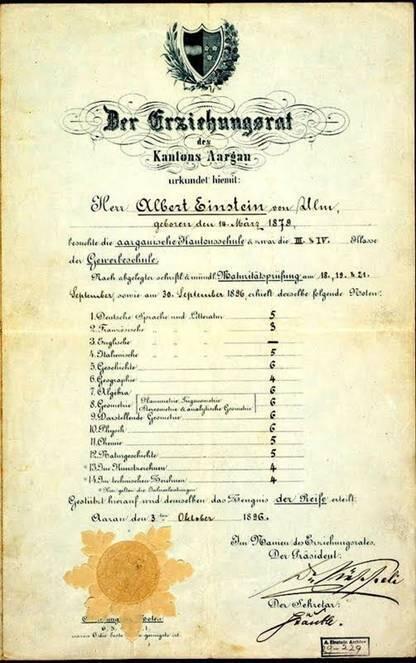 Der Erziehungsrat
des
Kantons Aargau
urkundet hiemit:
Herr Albert Einstein von Ulm,
geboren den 14. März 1879,
besuchte die aargauische Kantonsschule & zwar die III. & IV. Klasse
der Gewerbeschule.
Nach abgelegter schriftl. & mündl. Maturitätsprüfung am 18., 19. & 21.
September, sowie am 30. September 1896, erhielt derselbe folgende Noten:
1. Deutsche Sprache und Litteratur 5
2. Französische " " " 3
3. Englische " " " —
4. Italienische " " " 5
5. Geschichte 6
6. Geographie 4
7. Algebra 6
8. Geometrie Planimetrie, Trigonometrie Stereometrie & analytische Geometrie 6
9. Darstellende Geometrie 6
10. Physik 6
11. Chemie 5
12. Naturgeschichte 5
*13. Im Kunstzeichnen 4
*14. Im technischen Zeichnen 4
* Hier gelten die Jahresleistungen.
Gestützt hierauf wird demselben das Zeugnis der Reife erteilt.
Aarau den 3ten Oktober 1896.
Im Namen des Erziehungsrates,
Der Präsident:
Der Sekretär:
6. 5. 1.
A. Einstein Archive
29-229